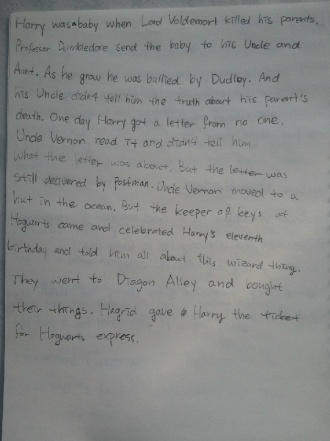 Harry was a baby when Lord Voldemort killed his parents.
Professor Dumbledore send the baby to his Uncle and
Aunt. As he grow he was bullied by Dudley. And
his Uncle didn4 tell him the truth about his parent's
death. One day Harry got a letter from no one.
Uncle Vernon read it and didn4 tell him
what the letter was about. But the letter was
still delivered by Postman. Uncle Vernon moved to a
hut in the ocean. But the keeper of keys at
Hogwarts came and celebrated Harry's eleventh
birthday and told him all about this wizard thing.
They went to Diagon Alley and bought
their things. Hagrid gave Harry the ticket
for Hogwarts express.